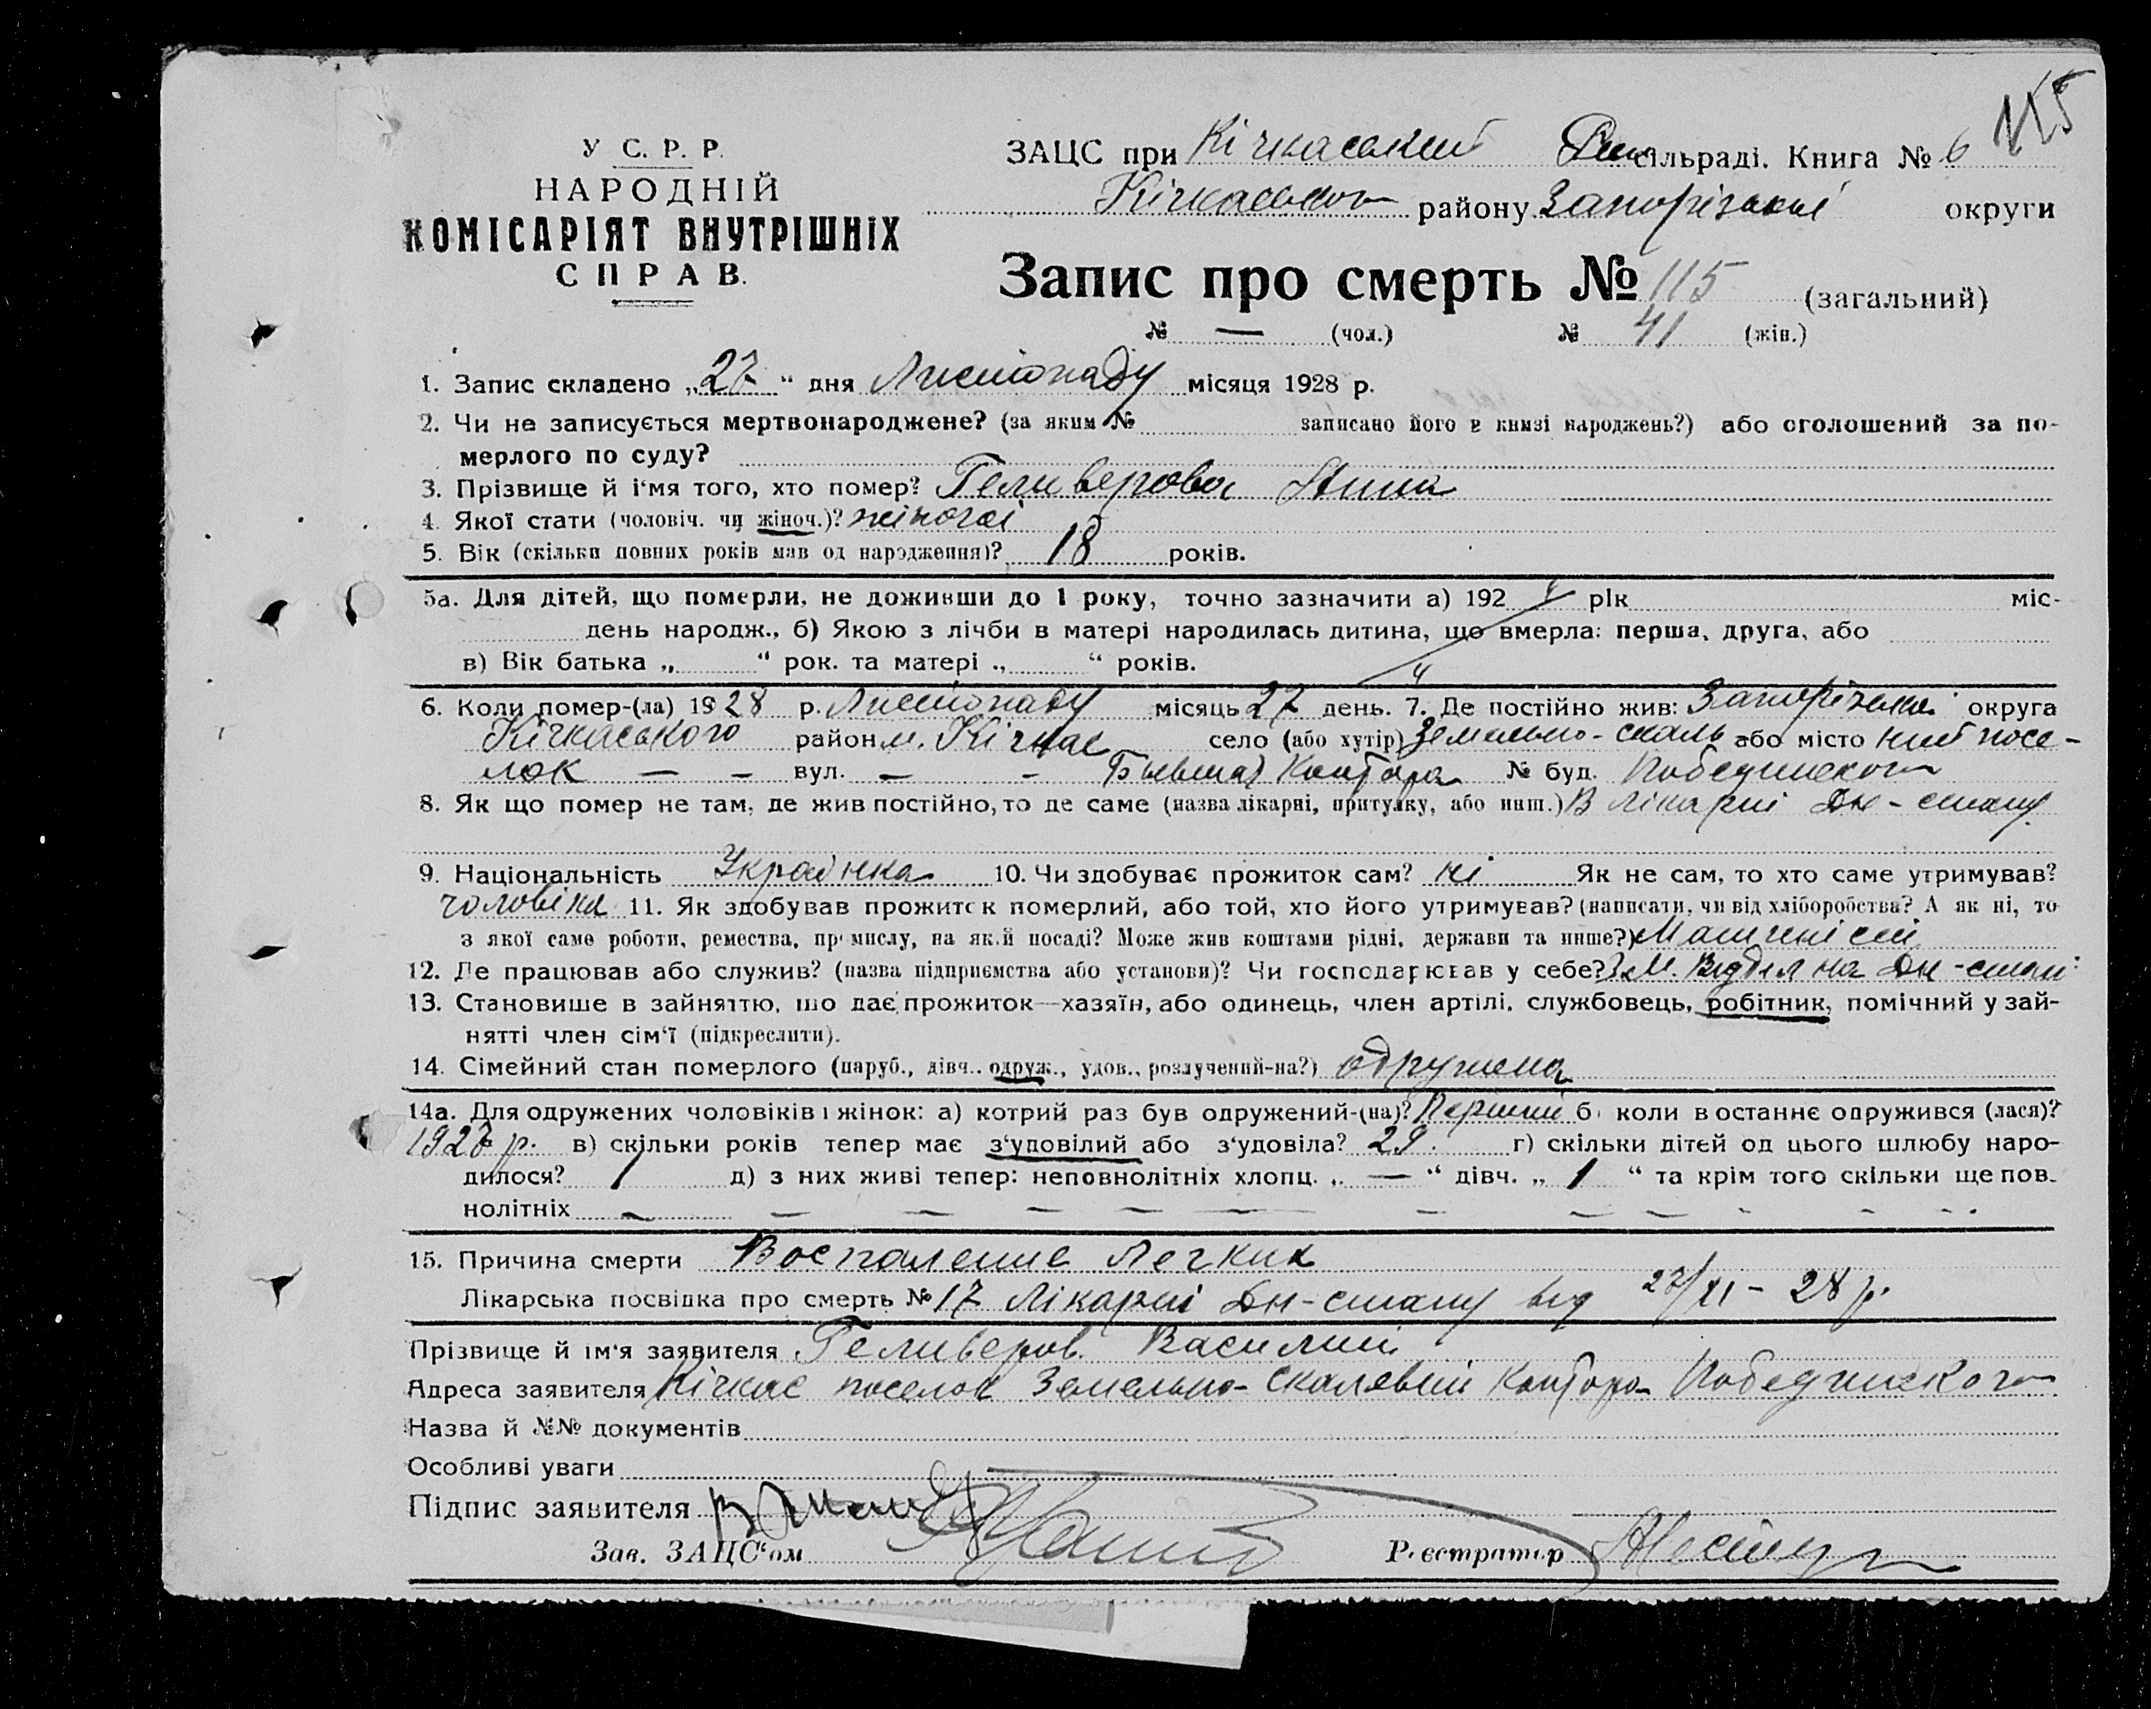 115
У С. Р. Р.
НАРОДНІЙ
КОМІСАРІЯТ ВНУТРІШНІХ
СПРАВ.
ЗАЦС при Кічкаський сільраді. Книга № 6
Кічкаського району Запорізької округи
Запис про смерть № 115 (загальний)
№ — (чол.) № 41 (жін.)
1. Запис складено „27“ дня Листопаду місяця 1928 р.
2. Чи не записується мертвонароджене? (за яким № записано його в книзі народжень?) або оголошений за по-
мерлого по суду?
3. Прізвище й і'мя того, хто помер? Геливерова Анна
4. Якої стати (чоловіч. чи жіноч.)? жіночої
5. Вік (скільки повних років мав од народження)? 18 років.
5а. Для дітей, що померли, не доживши до 1 року, точно зазначити а) 192 рік міс-
день народж., б) Якою з лічби в матері народилась дитина, що вмерла: перша, друга, або
в) Вік батька „ “ рок. та матері „ “ років.
6. Коли помер-(ла) 1928 р. Листопаду місяць 27 день. 7. Де постійно жив: Запорізької округа
Кічкаського район м. Кічкас село (або хутір) Земельно-скаль або місто ний посе-
лок — — вул. — — Бывшая Контора № буд. Побединского
8. Як що помер не там, де жив постійно, то де саме (назва лікарні, притулку, або инш.) В лікарні Дн-стану
9. Національність Українка 10. Чи здобуває прожиток сам? ні Як не сам, то хто саме утримував?
чоловіка 11. Як здобував прожиток померлий, або той, хто його утримував? (написати, чи від хліборобства? А як ні, то
з якої саме роботи, ремества, промислу, на якій посаді? Може жив коштами рідні, держави та инше?) Машиніст
12. Де працював або служив? (назва підприємства або установи)? Чи господарював у себе? З.М. Відділ на Дн-стані
13. Становище в зайняттю, що дає прожиток—хазяїн, або одинець, член артілі, службовець, робітник, помічний у зай-
нятті член сім'ї (підкреслити).
14. Сімейний стан померлого (паруб., дівч., одруж., удов., розлучений-на?) одружена
14а. Для одружених чоловіків і жінок: а) котрий раз був одружений-(на)? Перший б) коли в останнє одружився (лася)?
1927 р. в) скільки років тепер має з'удовілий або з'удовіла? 29. г) скільки дітей од цього шлюбу наро-
дилося? 1 д) з них живі тепер: неповнолітніх хлопц. „ — “ дівч. „ 1 “ та крім того скільки ще пов-
нолітніх — — — — — — — — —
15. Причина смерти Воспаление Легких
Лікарська посвідка про смерть № 17 Лікарні Дн-стану від 27/XI - 28 р.
Прізвище й ім'я заявителя Геливеров Василий
Адреса заявителя Кічкас поселок Земельно-Скалевий Контора Побединского
Назва й №№ документів
Особливі уваги
Підпис заявителя
Зав. ЗАЦС'ом Реєстратор